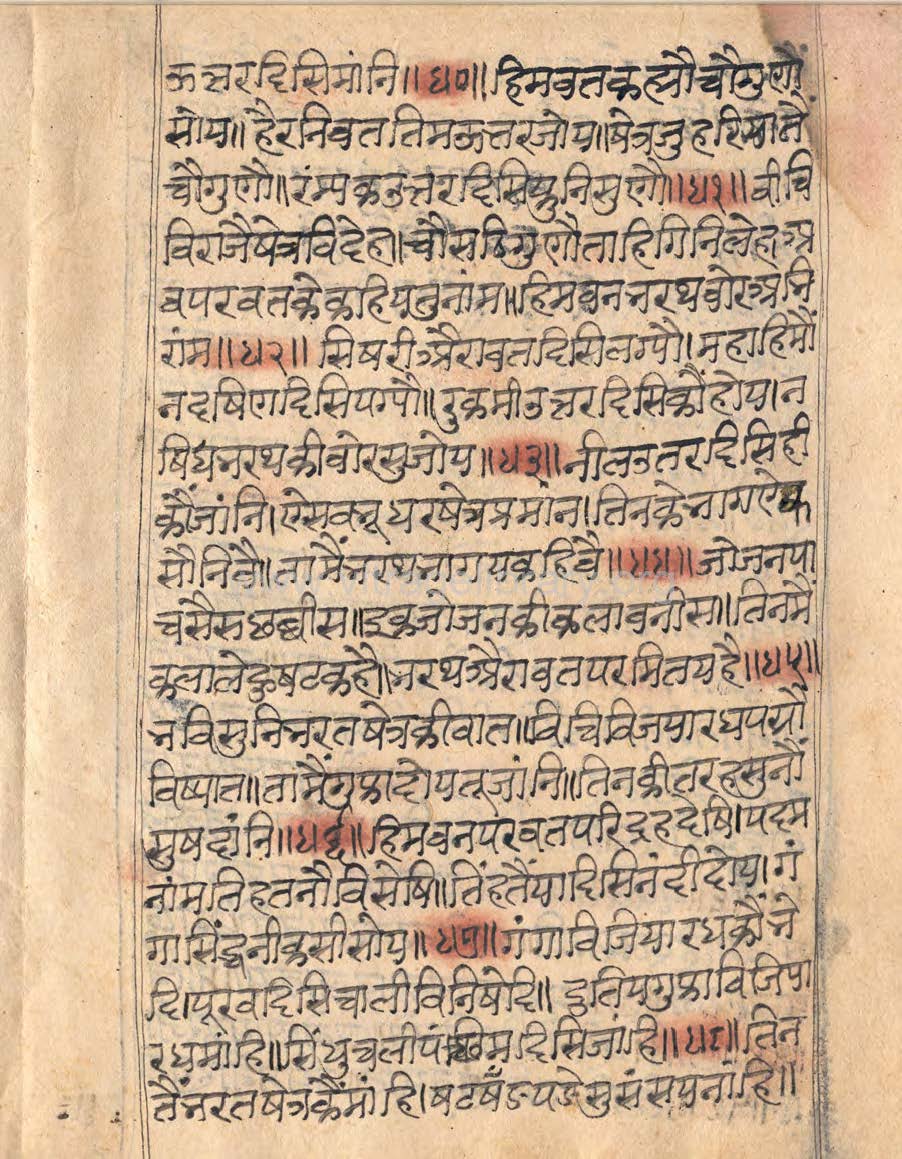 ऊत्तरदिसिमांनि॥४०॥हिमवतकह्यौचौगुणौं
सोय॥हैरनिवततिमऊत्तरजोय॥षेत्रजुहरिष्यातैं
चौगुणौ॥रंम्पकउत्तरदिसिपुनिसुणौ॥४१॥वीचि
विराजैषेत्रविदेह।चौसठिगुणौताहिगिनिलेहअ
बपरवतकेकहियतुनांम॥हिमवनभरथवोरअभि
रांम॥४२॥ सिषरीअैरावतदिसिलग्पौ।महाहिमौं
नदषिणदिसिपग्पौ॥रुकमीउत्तरदिसिकौंहोय।न
षिधभरथकीवोरसुजोय॥४३॥नीलउतरदिसिही
कौंजांनि।ऐसवभूधरषेत्रप्रमांन।तिनकेभागऐक
सौनिवै॥तामैंभरथभागयकहिवै॥४४॥जोजनपा
चसैसछव्वीस॥इकजोजनकीकलावनीस॥तिनमैं
कलालेहुषटकहै॥भरथअैरावतपरमितयहै॥४५॥
अविसुनिभरतषेत्रकीवात॥विचिविजयारधपर्यौ
विष्पात॥तामैंगुफादोयतूजांनि॥तिनकीतरहसुनौं
सुषदांनि॥४६॥हिमवनपरवतपरिद्रहदेषि।पदम
नांमतिहतनौविसेषि॥तिंहतैंयादिसिनंदीदोय।गं
गासिंधूनीकसीसोय॥४७॥गंगाविजियारधकौंभे
दि।पूरवदिसिचालीविनिषेदि॥ दुतियगुफाविजिया
रधमांहि॥सिंधुचलीपंछिमदिसिजांहि॥४८॥तिन
तैंभरतषेत्रकैमांहि।षटषंङपङेसुसंसयनांहि॥